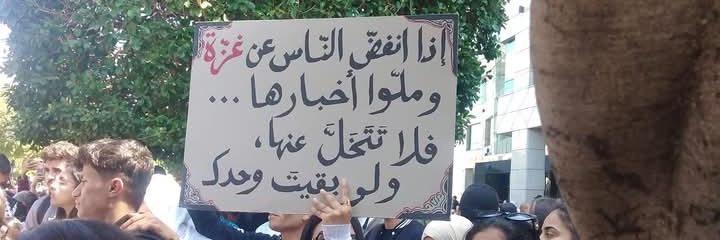 إذا انفضّ النّاس عن غزّة
وملّوا أخبارها ...
فلا تَتَخَلَّ عنها،
ولو بقيتَ وحدك